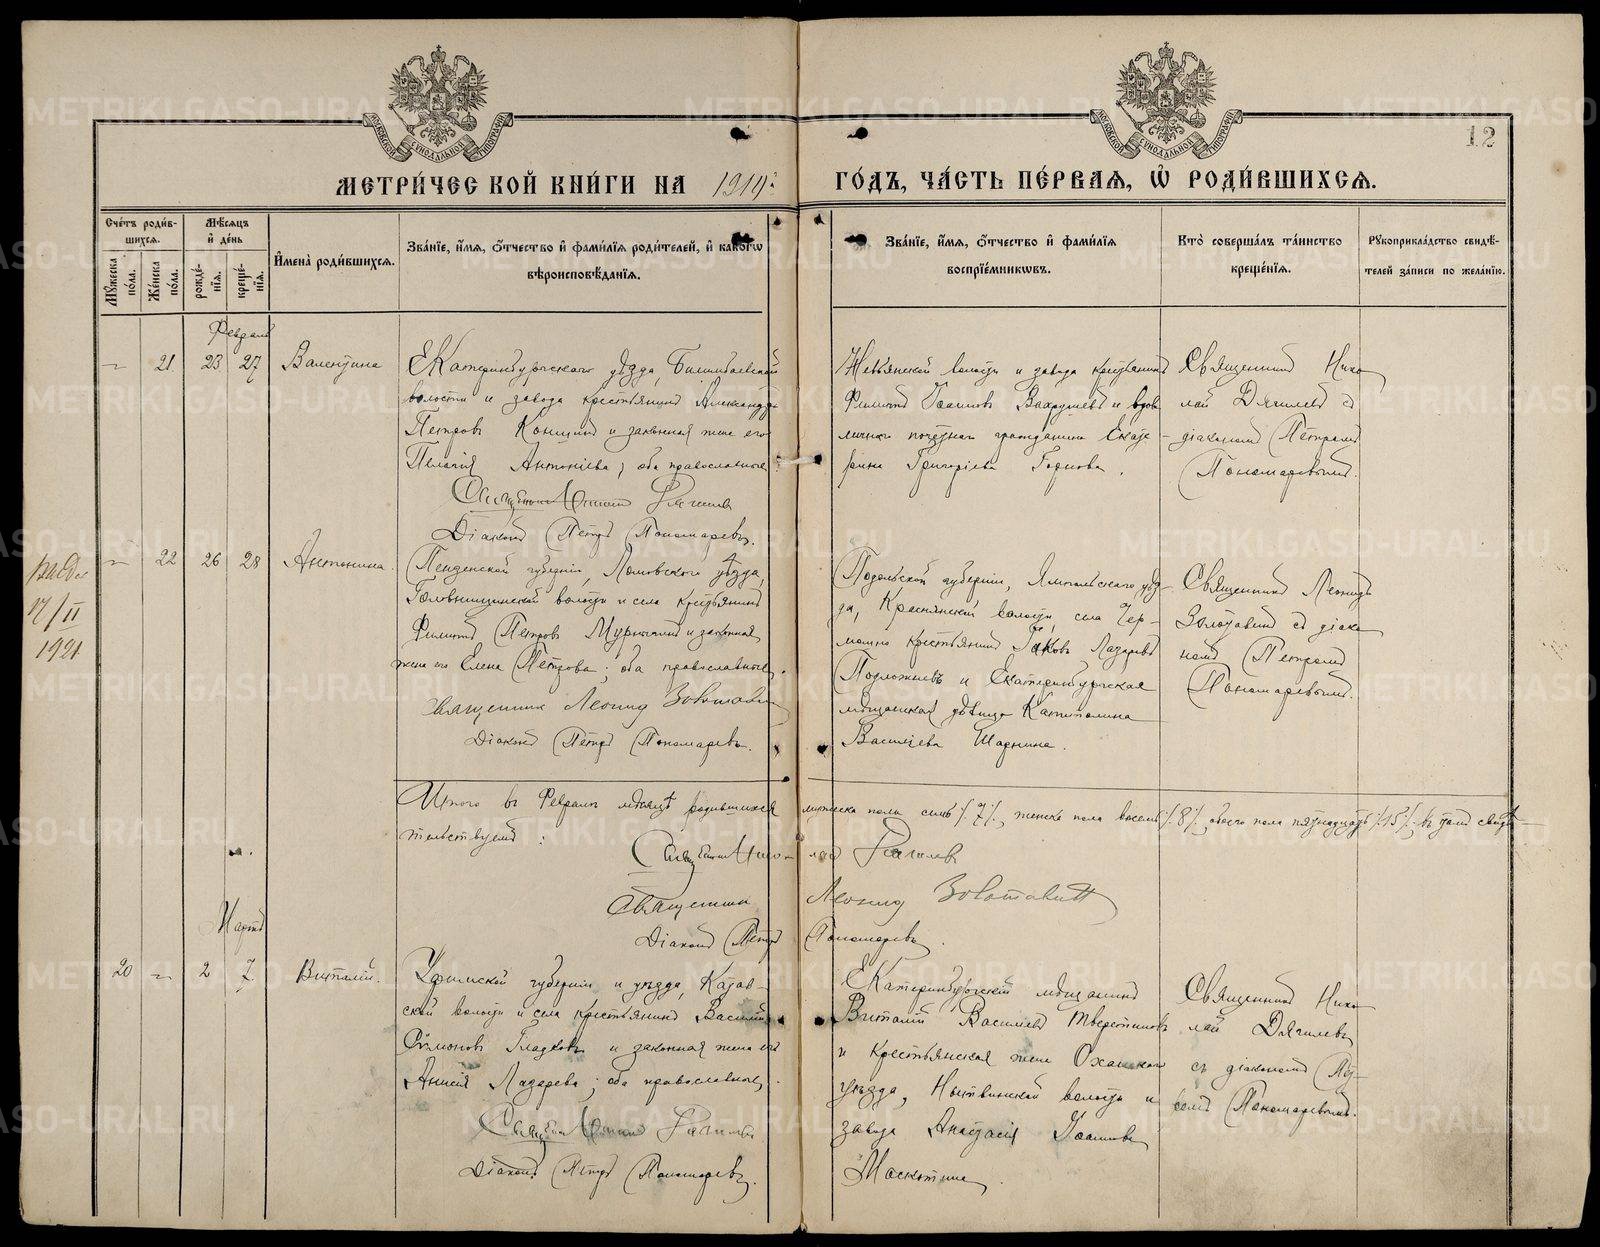 12
МЕТРИ́ЧЕСКОЙ КНИ́ГИ НА 1914 ГО́ДЪ, ЧА́СТЬ ПЕ́РВАЯ, Ѽ РОДИ́ВШИХСЯ.
Сче́тъ роди́в-
шихся.
Мѣ́сяцъ
и҆ де́нь
Мꙋ́жеска по́ла.
Же́нска по́ла.
рожде́-
нїя.
креще́-
нїя.
И҆мена̀ роди́вшихся.
Зва́нїе, и҆́мя, ѻ҆́тчество и҆ фами́лїя роди́телей, и҆ како́гѡ
вѣроисповѣ́данїя.
Зва́нїе, и҆́мя, ѻ҆́тчество и҆ фами́лїя
воспрїе́мникѡвъ.
Кто̀ соверша́лъ та́инство
креще́нїя.
Рꙋкоприкла́дство свидѣ́-
телей за́писи по жела́нїю.
Февраль
21 23 27 Валентина
Екатеринбургскаго уѣзда, Билимбаевской
волости и завода крестьянинъ Александръ
Петровъ Конинъ и законная жена его
Пелагія Антоніева; оба православные.
Діаконъ Петръ Пономаревъ.
Невьянской волости и завода крестьянинъ
Филиппъ Іоанновъ Вахрушевъ и вдова
личнаго почетнаго гражданина Екате-
рина Григоріева
Священникъ Нико
лай Дягилевъ съ
діакономъ Петромъ
Пономаревымъ.
22 26 28 Антонина.
17/II
1921
Пензенской губерніи, Ломовского уѣзда,
Головинщинской волости и села крестьянинъ
Филиппъ Петровъ и законная
жена его Елена Петрова; оба православные.
Священник Леонид Золотавин
Діаконъ Петръ Пономаревъ.
Подольской губерніи, Ямпольскаго уѣз-
да, Краснянской волости, села Чер-
крестьянинъ Іаковъ Лазаревъ
и Екатеринбургская
мѣщанская дѣвица Капитолина
Васильева
Священникъ Леонидъ
Золотавинъ съ діако
номъ Петромъ
Пономаревымъ.
Итого въ Февралѣ мѣсяцѣ родившихся мужеска пола семь /7/, женска пола восемь /8/, обоего пола пятнадцать /15/, въ томъ свидѣ-
тельствуемъ:
Священникъ Николай Дягилев
Священник Леонид Золотавин
Діаконъ Петръ Пономаревъ.
Мартъ
20 2 7 Виталій.
Уфимской губерніи и уѣзда,
ской волости и села крестьянинъ Василій
Симоновъ Гладковъ и законная жена его
Анисія Лазарева; оба православные.
Діаконъ Петръ Пономаревъ.
Екатеринбургскій мѣщанинъ
Виталій Васильевъ
и крестьянская жена Оханскаго
уѣзда, Нытвинской волости и
завода Анастасія Іоаннова
Священникъ Нико
лай Дягилевъ
съ діакономъ Пет-
ромъ Пономаревымъ.
METRIKI.GASO-URAL.RU